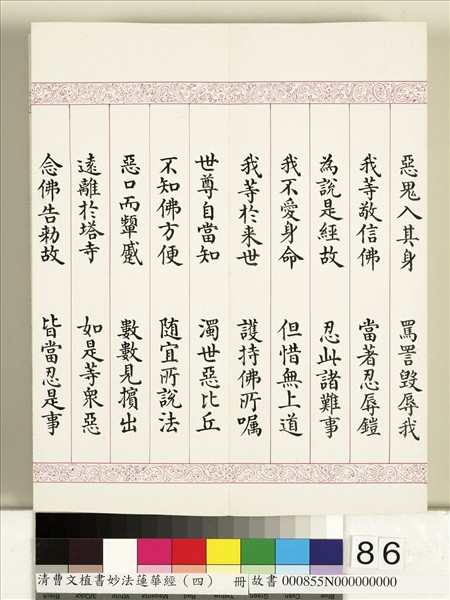 惡鬼入其身　罵詈毀辱我
我等敬信佛　當著忍辱鎧
為說是經故　忍此諸難事
我不愛身命　但惜無上道
我等於来世　護持佛所嘱
世尊自當知　濁世惡比丘
不知佛方便　随宜所說法
惡口而顰蹙　數數見擯出
遠離於塔寺　如是等衆惡
念佛告勅故　皆當忍是事
86
清曹文植書妙法蓮華經（四）　冊 故書 000855N000000000